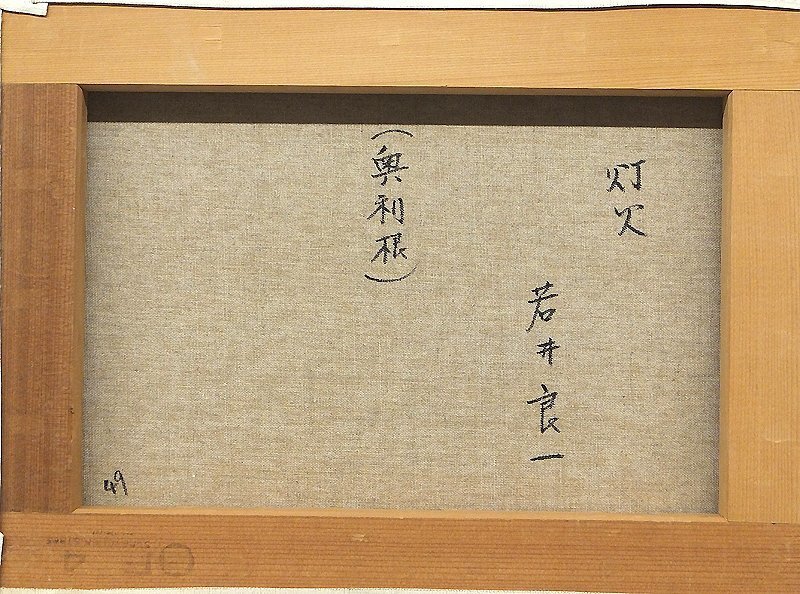 灯火
若井良一
（奥利根）
49